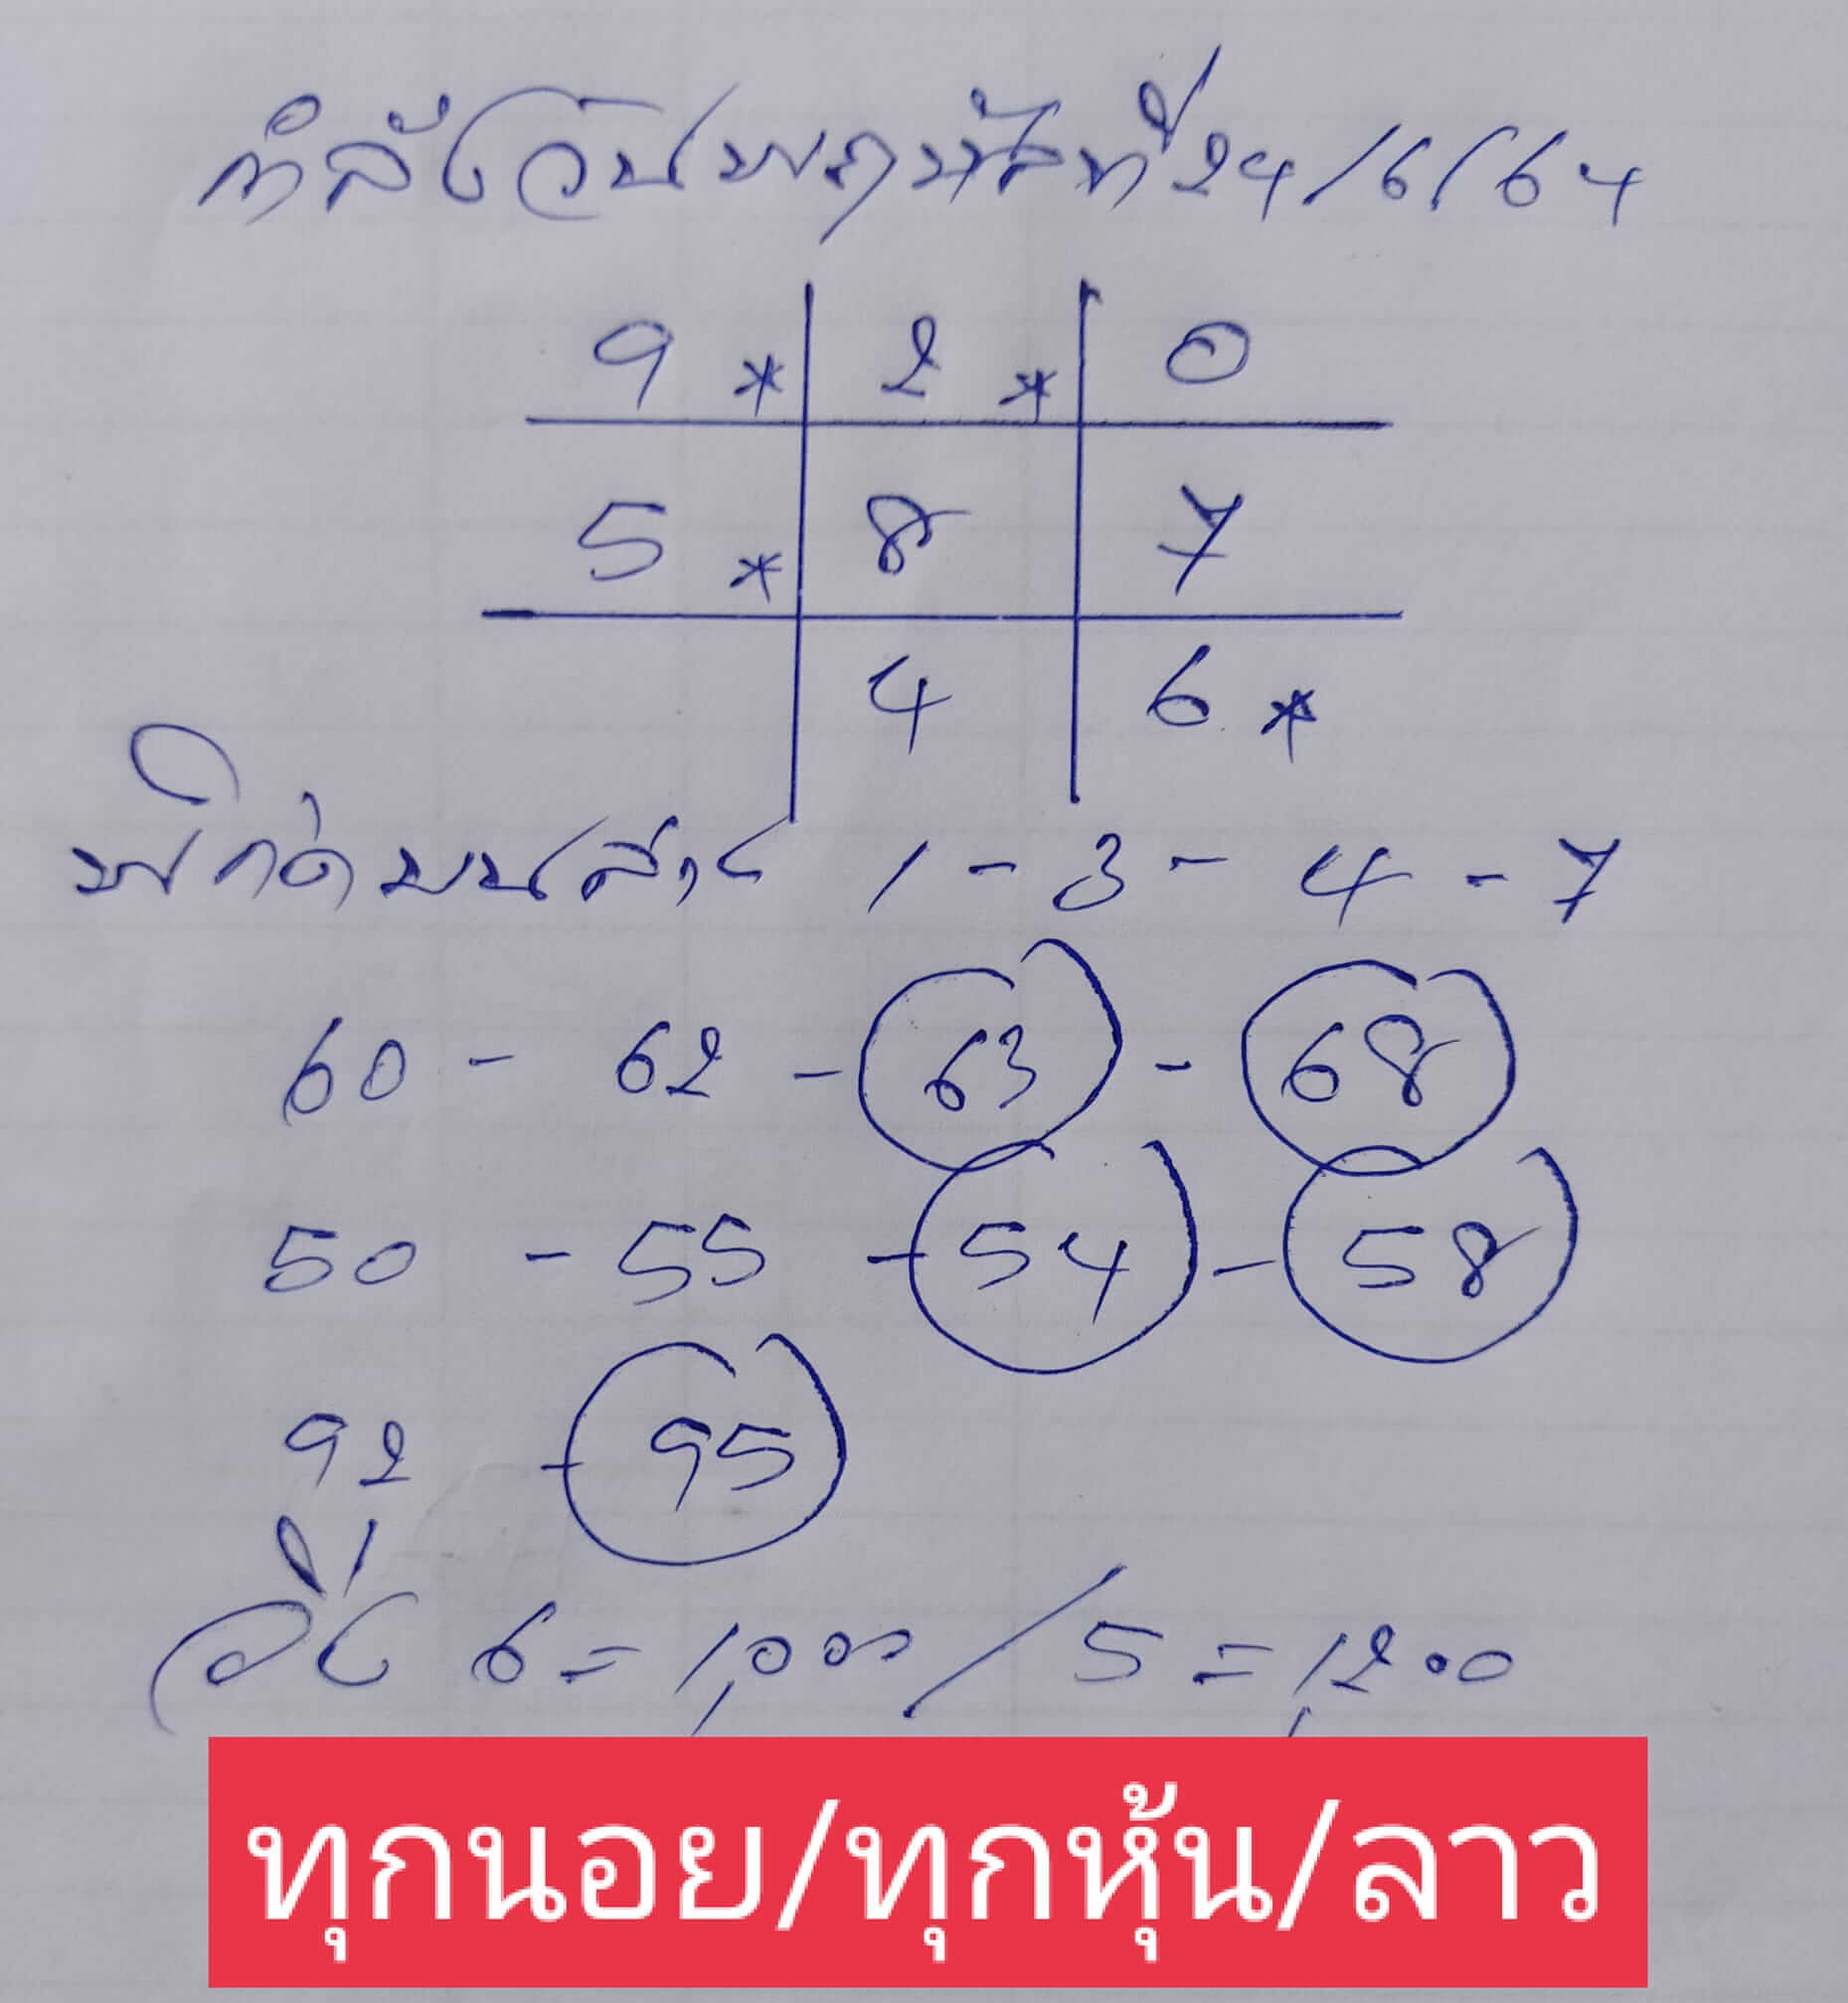 กำลังวันพฤหัสที่ 24/6/64
9 * 2 * 0
5 * 8 7
4 6 *
พิกัดบนล่าง 1 - 3 - 4 - 7
60 - 62 - 63 - 68
50 - 55 - 54 - 58
92 - 95
วิ่ง 6 = 1,000 / 5 = 1,200
ทุกนอย/ทุกหุ้น/ลาว